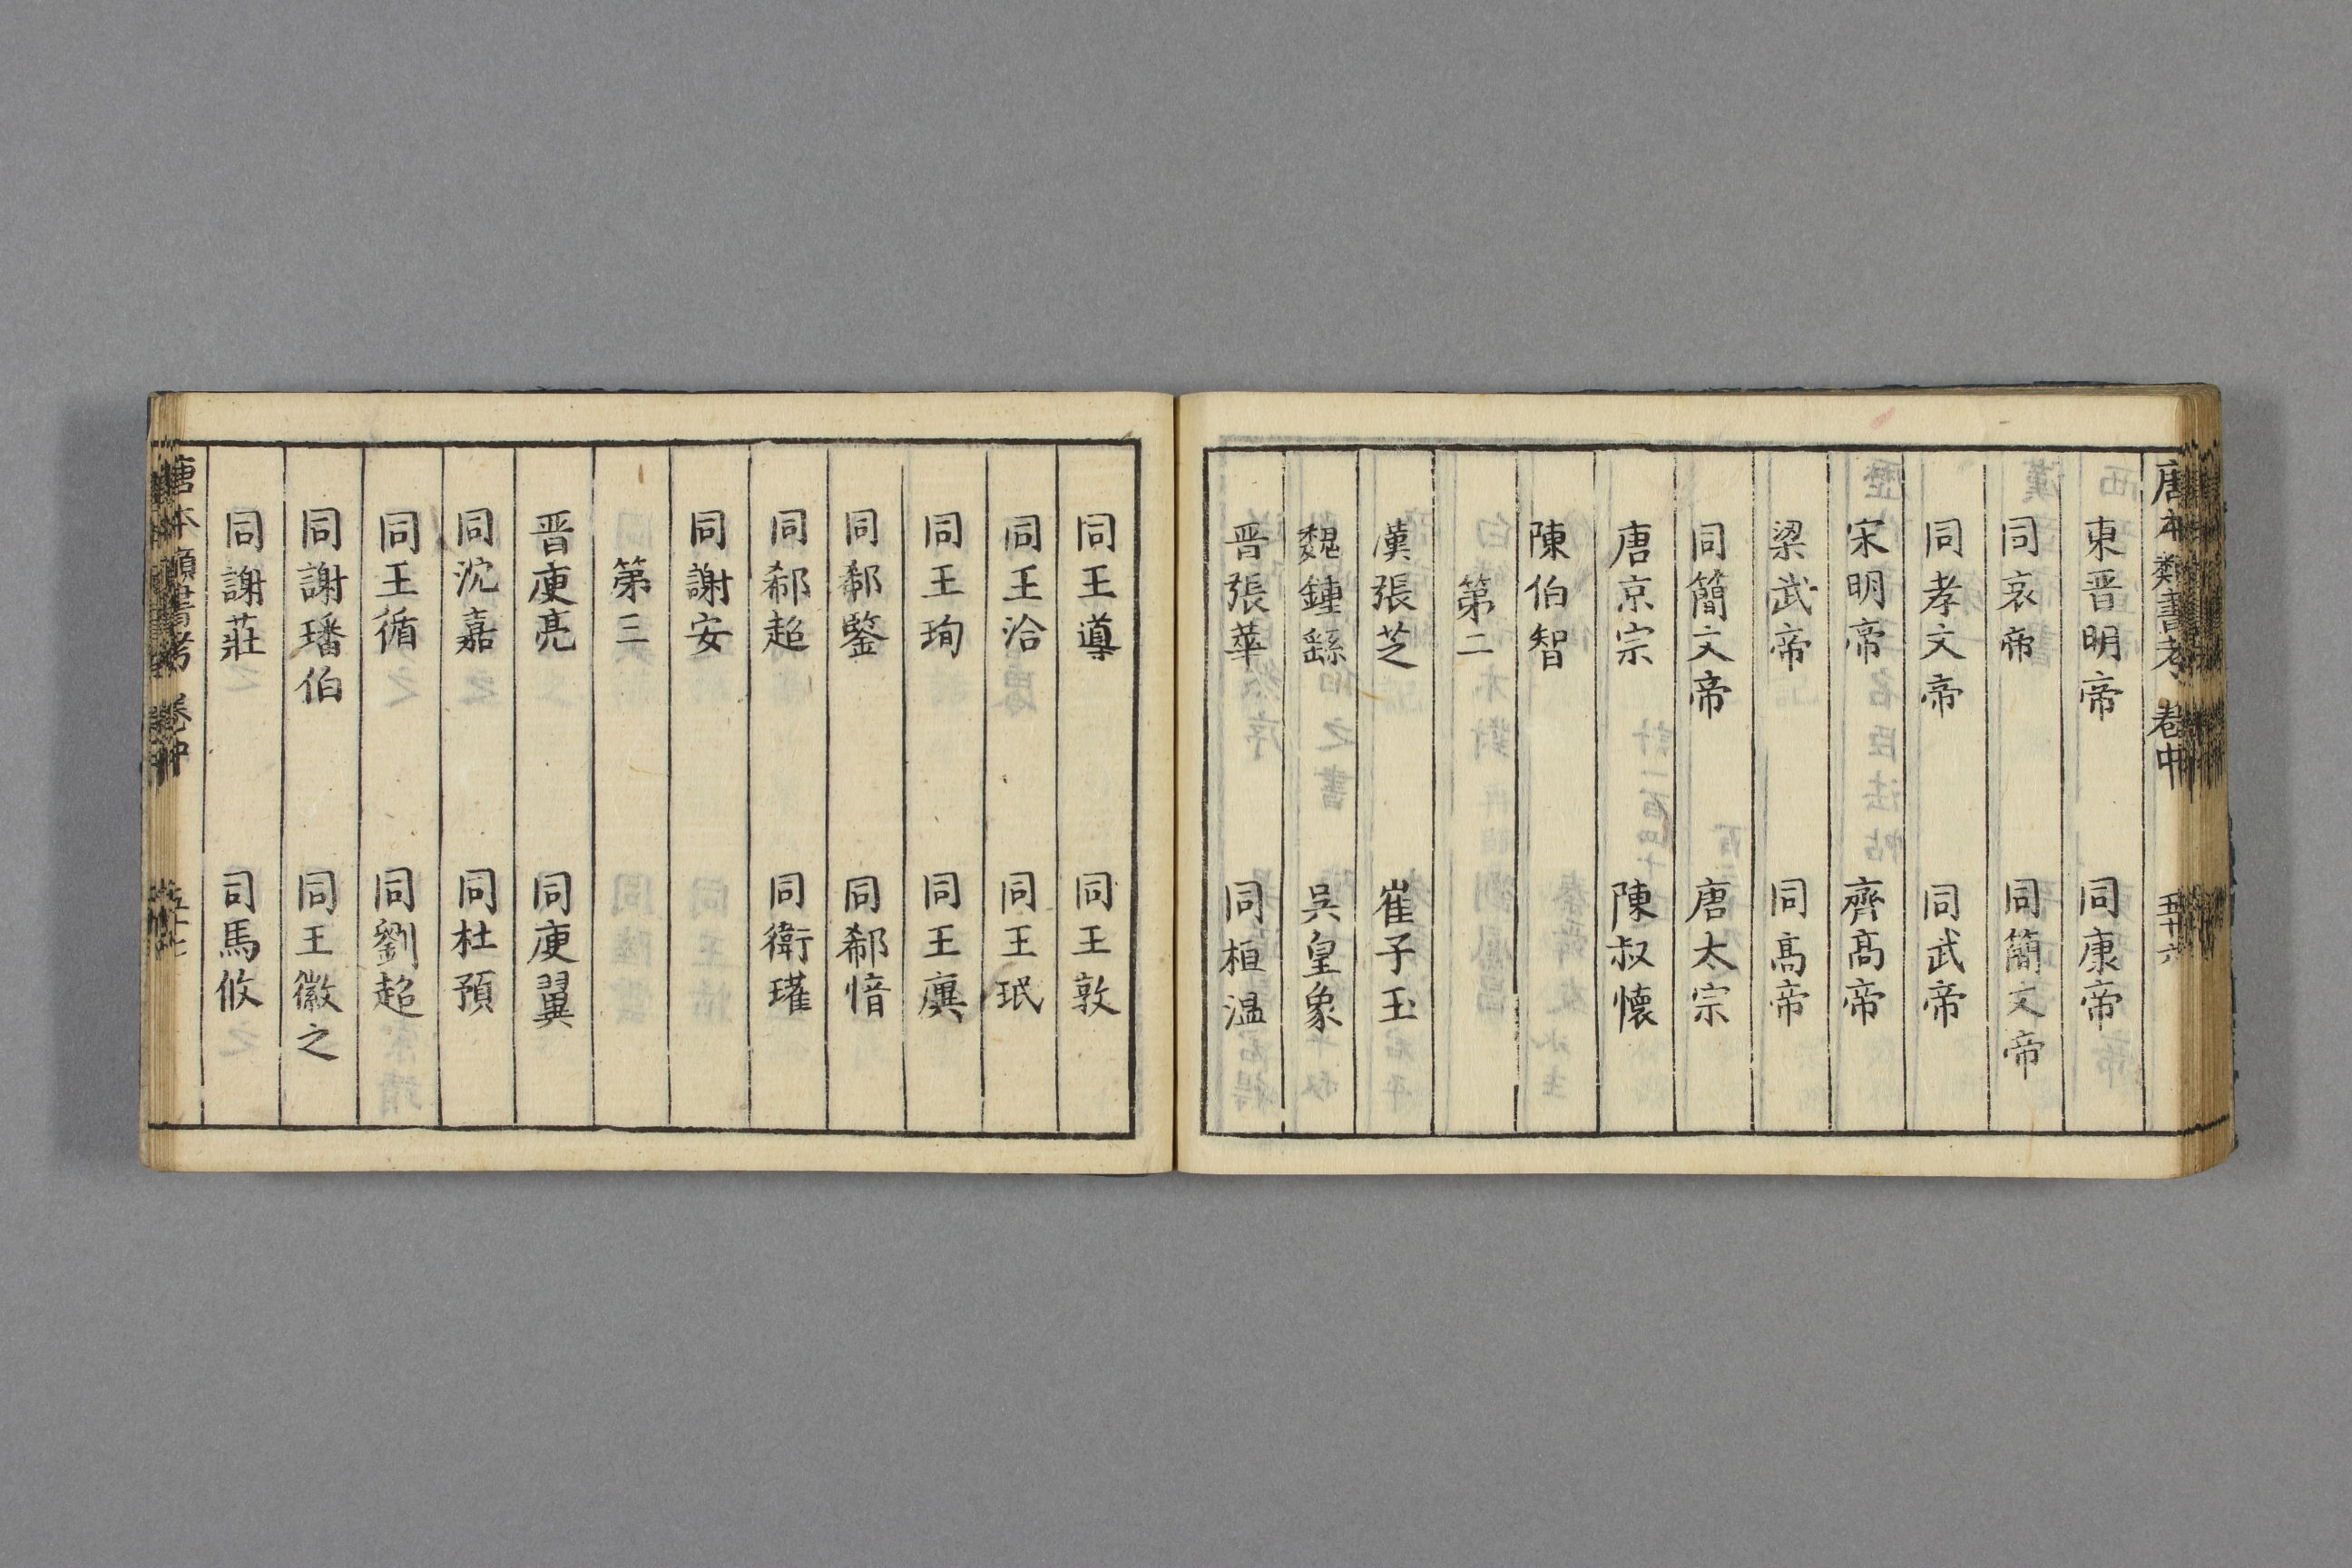 唐本類書考 卷中 五十六
東晋明帝 同康帝
同哀帝 同簡文帝
同孝文帝 同武帝
宋明帝 齊髙帝
梁武帝 同髙帝
同簡文帝 唐太宗
唐京宗 陳叔懷
陳伯智
第二
漢張芝 崔子玉
魏鍾繇 吳皇象
晋張華 同桓溫
同王導 同王敦
同王洽 同王珉
同王珣 同王廙
同郗鑒 同郗愔
同郗超 同衛瓘
同謝安
第三
晋庾亮 同庾翼
同沈嘉 同杜預
同王循 同劉超
同謝璠伯 同王徽之
同謝莊 司馬攸
唐本類書考 卷中 五十七